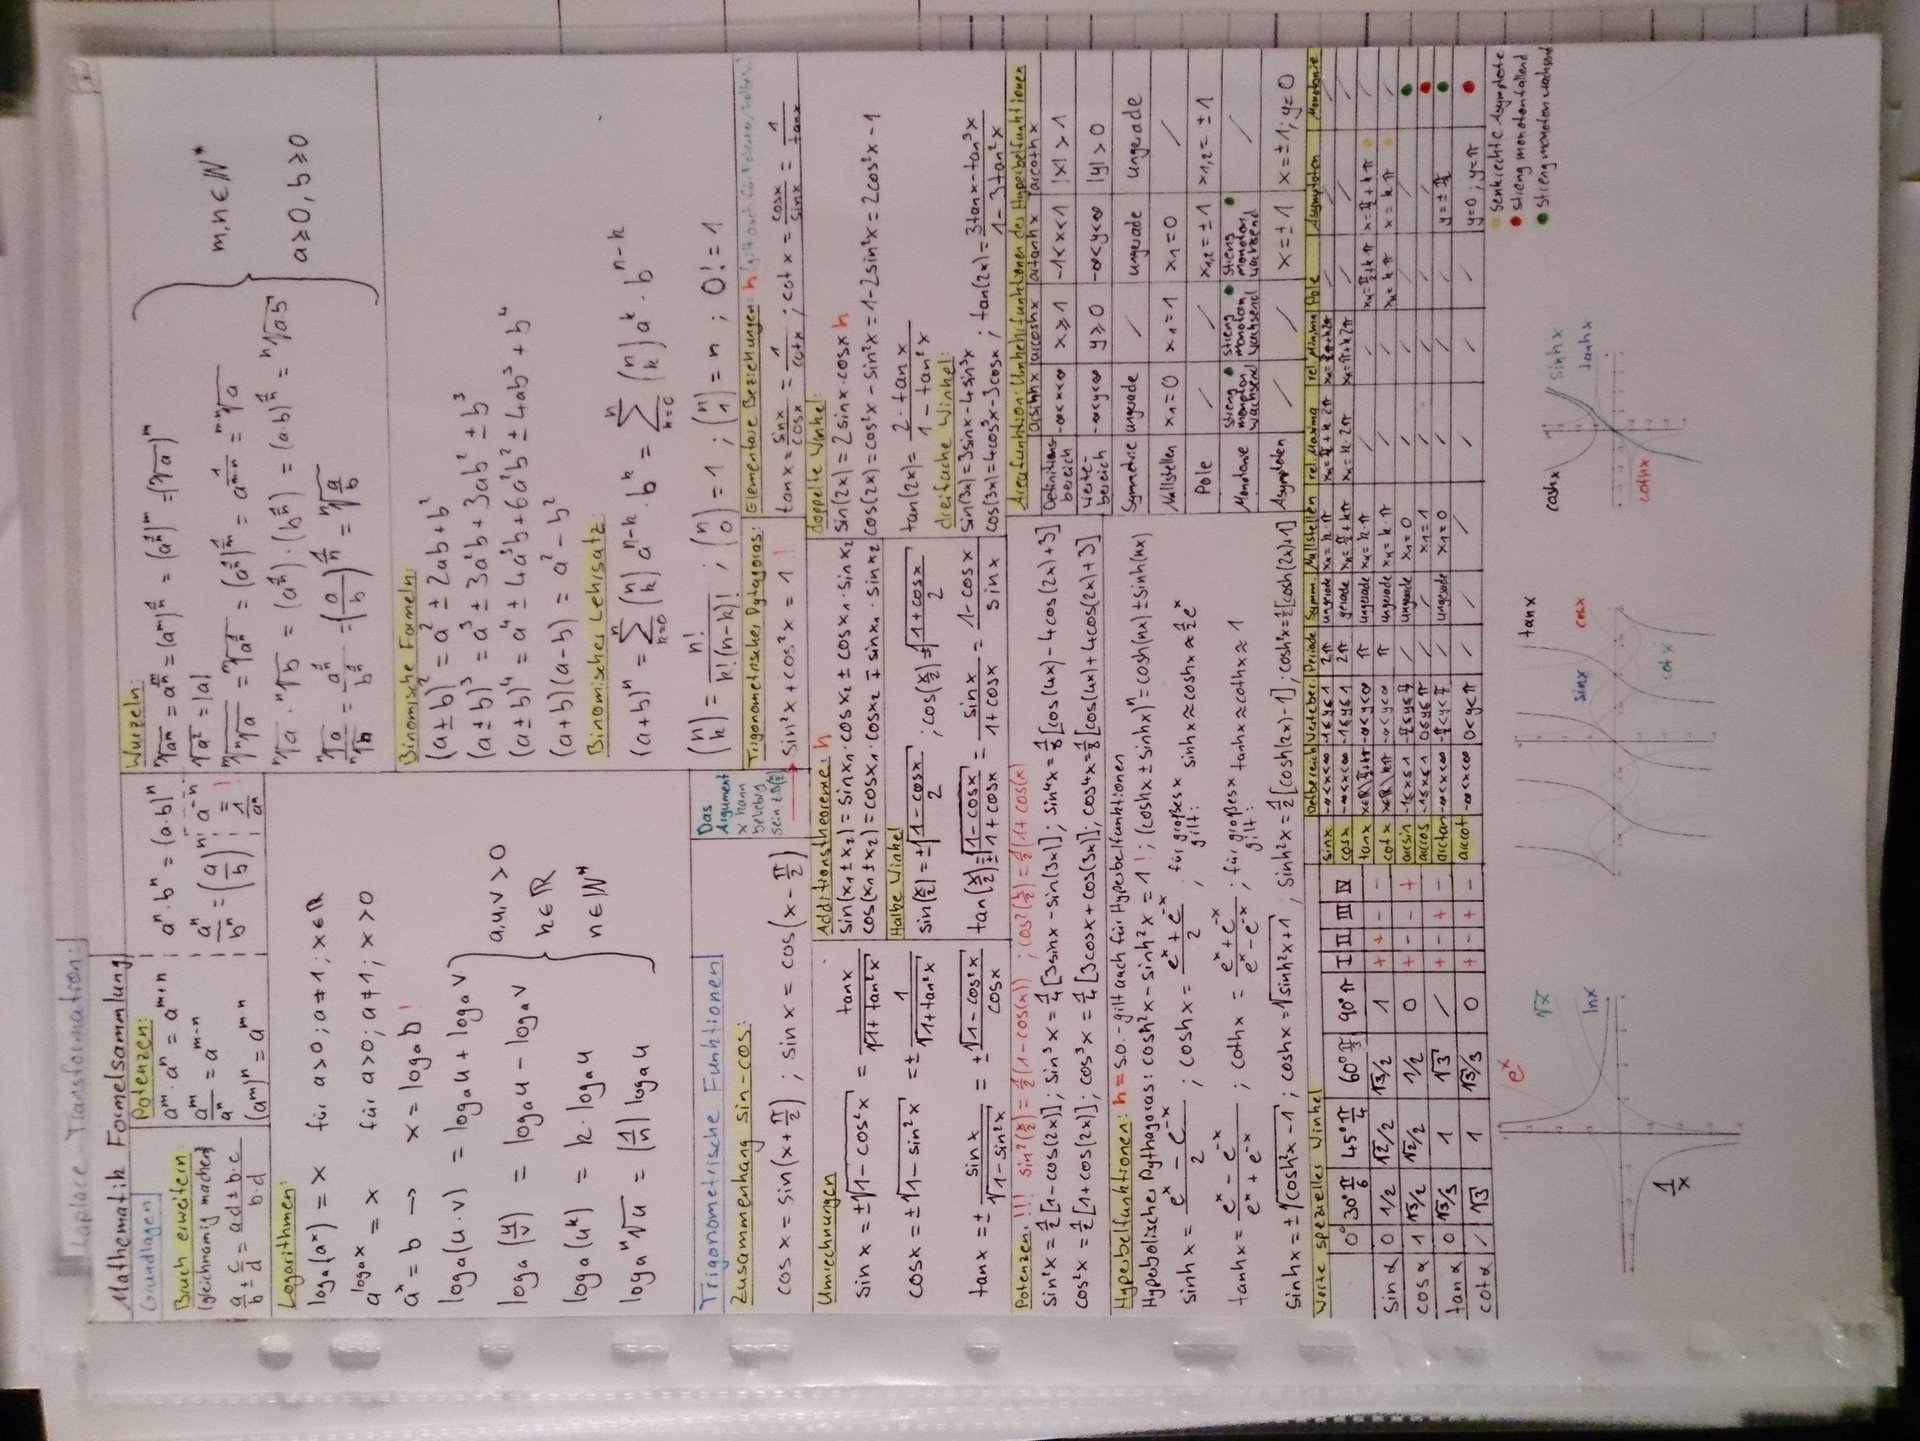 Laplace Transformation:
Mathematik Formelsammlung
Grundlagen
Bruch erweitern
(gleichnamig machen)
a/b ± c/d = (a·d ± b·c)/(b·d)
Potenzen:
a^m · a^n = a^(m+n)
a^m/a^n = a^(m-n)
(a^m)^n = a^(m·n)
a^n · b^n = (a·b)^n
a^n/b^n = (a/b)^n
a^-n = 1/a^n !
Logarithmen:
log_a(a^x) = x für a>0; a≠1; x∈ℝ
a^(log_a x) = x für a>0; a≠1; x>0
a^x = b → x = log_a b !
log_a(u·v) = log_a u + log_a v
log_a(u/v) = log_a u - log_a v
log_a(u^k) = k · log_a u
log_a ⁿ√u = (1/n) log_a u
a,u,v > 0
k∈ℝ
n∈ℕ*
Wurzeln:
ⁿ√(a^m) = a^(m/n) = (a^m)^(1/n) = (a^(1/n))^m = (ⁿ√a)^m
√(a²) = |a|
ᵐ√(ⁿ√a) = ᵐ√(a^(1/n)) = (a^(1/n))^(1/m) = a^(1/(m·n)) = ᵐ·ⁿ√a
ⁿ√a · ⁿ√b = (a^(1/n)) · (b^(1/n)) = (a·b)^(1/n) = ⁿ√(a·b)
ⁿ√a / ⁿ√b = a^(1/n)/b^(1/n) = (a/b)^(1/n) = ⁿ√(a/b)
m,n∈ℕ*
a≥0, b≥0
Binomische Formeln:
(a±b)² = a² ± 2ab + b²
(a±b)³ = a³ ± 3a²b + 3ab² ± b³
(a±b)⁴ = a⁴ ± 4a³b + 6a²b² ± 4ab³ + b⁴
(a+b)(a-b) = a² - b²
Binomischer Lehrsatz:
(a+b)^n = Σ(k=0..n) (n k) a^(n-k) · b^k = Σ(k=0..n) (n k) a^k · b^(n-k)
(n k) = n!/(k!(n-k)!) ; (n 0) = 1 ; (n 1) = n ; 0! = 1
Trigonometrische Funktionen
Das Argument x kann beliebig sein
Zusammenhang sin-cos:
cos x = sin(x+π/2) ; sin x = cos(x-π/2)
Trigonometrischer Pytagoras:
sin²x + cos²x = 1 !
Elementare Beziehungen: h
tan x = sin x/cos x = 1/cot x ; cot x = cos x/sin x = 1/tan x
Umrechnungen
sin x = ±√(1-cos²x) = tan x/√(1+tan²x)
cos x = ±√(1-sin²x) = ± 1/√(1+tan²x)
tan x = ± sin x/√(1-sin²x) = ± √(1-cos²x)/cos x
Additionstheoreme: h
sin(x₁±x₂) = sin x₁ · cos x₂ ± cos x₁ · sin x₂
cos(x₁±x₂) = cos x₁ · cos x₂ ∓ sin x₁ · sin x₂
Halbe Winkel
sin(x/2) = ±√((1-cos x)/2) ; cos(x/2) = ±√((1+cos x)/2)
tan(x/2) = ±√((1-cos x)/(1+cos x)) = sin x/(1+cos x) = (1-cos x)/sin x
doppelte Winkel:
sin(2x) = 2 sin x · cos x h
cos(2x) = cos²x - sin²x = 1-2sin²x = 2cos²x - 1
tan(2x) = 2·tan x/(1-tan²x)
dreifache Winkel:
sin(3x) = 3sin x - 4sin³x
cos(3x) = 4cos³x - 3cos x ; tan(2x) = (3tan x - tan³x)/(1-3tan²x)
Potenzen: !!! sin²(x/2) = ½(1-cos(x)) ; cos²(x/2) = ½(1+cos(x)
sin²x = ½[1-cos(2x)] ; sin³x = ¼[3sinx - sin(3x)] ; sin⁴x = ⅛[cos(4x) - 4cos(2x)+3]
cos²x = ½[1+cos(2x)] ; cos³x = ¼[3cosx + cos(3x)] ; cos⁴x = ⅛[cos(4x) + 4cos(2x)+3]
Hyperbelfunktionen: h = s.o. - gilt auch für Hyperbelfunktionen
Hyperbolischer Pythagoras: cosh²x - sinh²x = 1 ! ; (cosh x ± sinh x)^n = cosh(nx) ± sinh(nx)
sinh x = (e^x - e^-x)/2 ; cosh x = (e^x + e^-x)/2 , für großes x gilt: sinh x ≈ cosh x ≈ ½e^x
tanh x = (e^x - e^-x)/(e^x + e^-x) ; coth x = (e^x + e^-x)/(e^x - e^-x) ; für großes x gilt: tanh x ≈ coth x ≈ 1
sinh x = ±√(cosh²x - 1) ; cosh x = √(sinh²x + 1) ; sinh²x = ½[cosh(2x) - 1] ; cosh²x = ½[cosh(2x)+1]
Areafunktion: Umkehrfunktionen des Hyperbelfunktionen
arsinh x arcosh x artanh x arcoth x
Definitionsbereich -∞<x<∞ x≥1 -1<x<1 |x|>1
Wertebereich -∞<y<∞ y≥0 -∞<y<∞ |y|>0
Symmetrie ungerade / ungerade ungerade
Nullstellen x₁=0 x₁=1 x₁=0 /
Pole / / x₁,₂=±1 x₁,₂=±1
Monotonie streng monoton wachsend streng monoton wachsend streng monoton wachsend /
Asymptoten / / x=±1 x=±1; y=0
Werte spezieller Winkel
0° 30° π/6 45° π/4 60° π/3 90° π I II III IV
sin α 0 1/2 √2/2 √3/2 1 + + - -
cos α 1 √3/2 √2/2 1/2 0 + - - +
tan α 0 √3/3 1 √3 / + - + -
cot α / √3 1 √3/3 0 + - + -
Defbereich Wertebe. Periode Symm. Nullstellen rel. Maxima rel. Minima Pole Asymptoten Monotonie
sin x -∞<x<∞ -1≤y≤1 2π ungerade xₖ=k·π xₖ=π/2+k·2π xₖ=3/2π+k2π / / /
cos x -∞<x<∞ -1≤y≤1 2π gerade xₖ=π/2+kπ xₖ=k·2π xₖ=π+k2π / / /
tan x x∈ℝ\π/2+kπ -∞<y<∞ π ungerade xₖ=k·π / / xₖ=π/2+k·π x=π/2+k·π /
cot x x∈ℝ\kπ -∞<y<∞ π ungerade xₖ=π/2+k·π / / xₖ=k·π x=k·π /
arcsin -1≤x≤1 -π/2≤y≤π/2 / ungerade x₁=0 / / / /
arccos -1≤x≤1 0≤y≤π / / x₁=1 / / / /
arctan -∞<x<∞ -π/2<y<π/2 / ungerade x₁=0 / / / y=±π/2
arccot -∞<x<∞ 0<y<π / / / / / / y=0; y=π
senkrechte Asymptote
streng monoton fallend
streng monoton wachsend
e^x
√x
ln x
1/x
tan x
sin x
cos x
cot x
cosh x
sinh x
tanh x
coth x